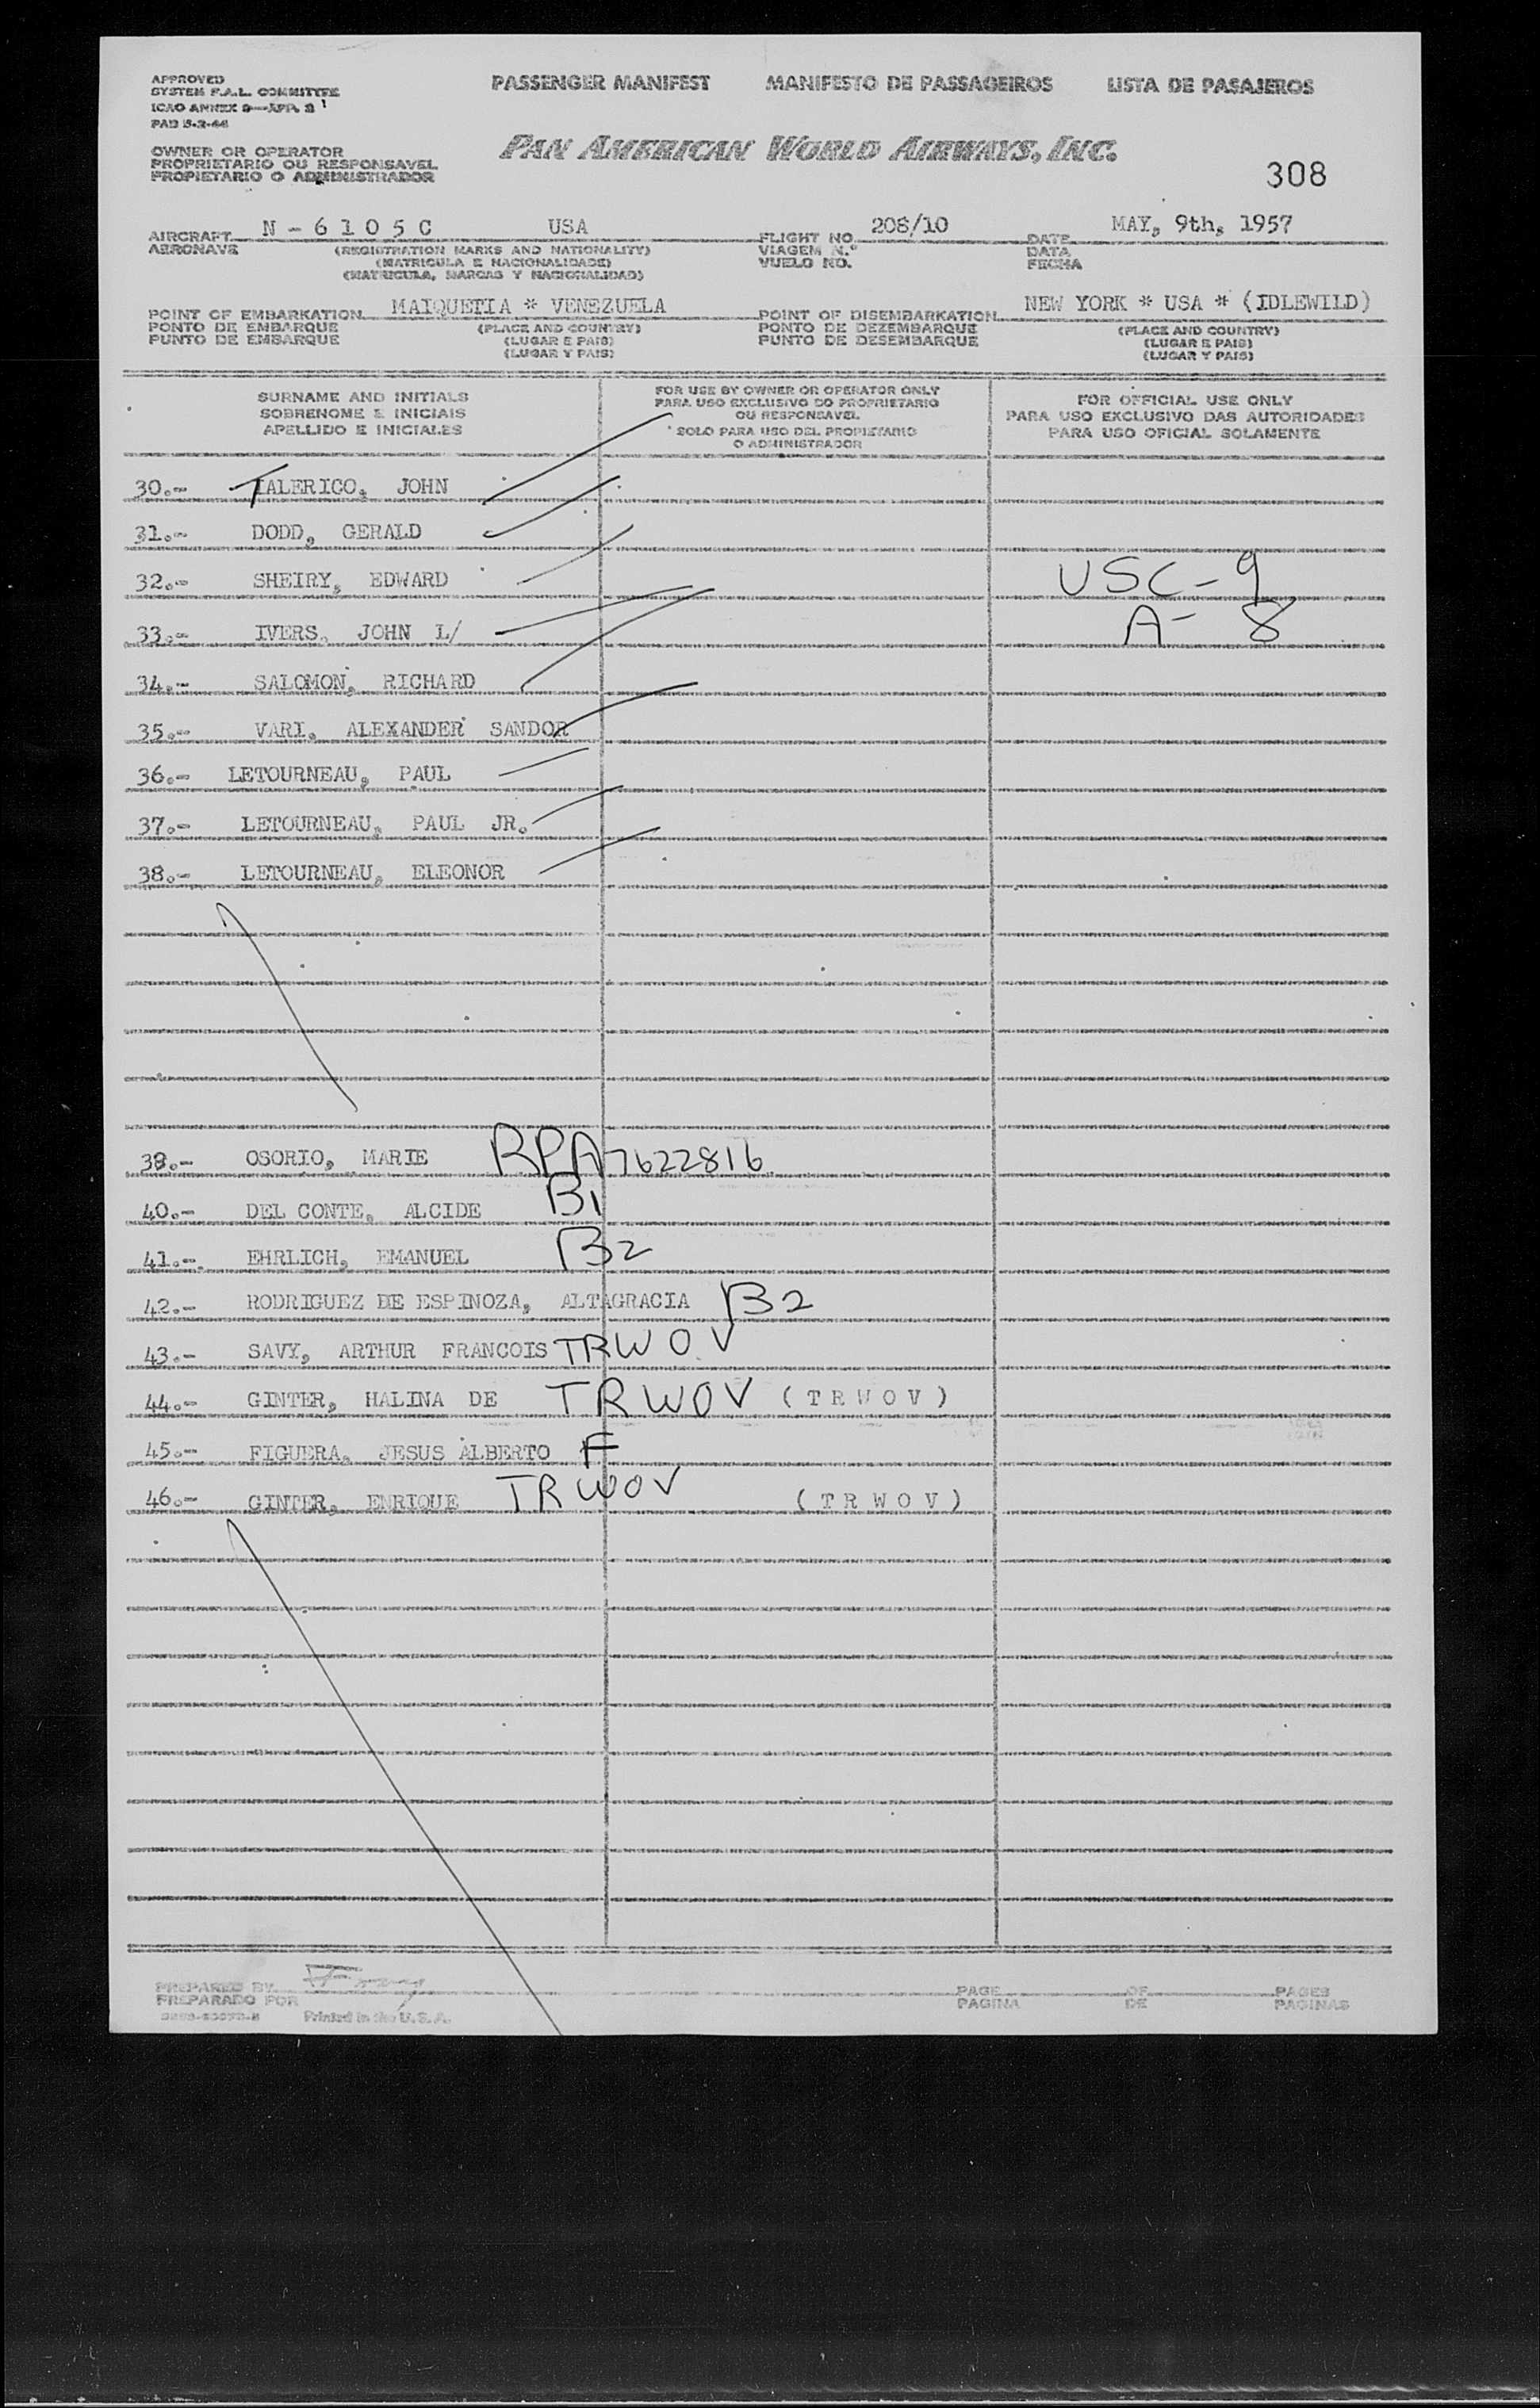 APPROVED
SYSTEM F.A.L. COMMITTEE
ICAO ANNEX 9—APP. 3
PAD 5-2-44
PASSENGER MANIFEST MANIFESTO DE PASSAGEIROS LISTA DE PASAJEROS
OWNER OR OPERATOR
PROPRIETARIO OU RESPONSAVEL
PROPIETARIO O ADMINISTRADOR
PAN AMERICAN WORLD AIRWAYS, INC.
308
AIRCRAFT N - 6 1 0 5 C USA FLIGHT NO. 208/10 DATE MAY, 9th, 1957
AERONAVE (REGISTRATION MARKS AND NATIONALITY) VIAGEM N.º DATA
(MATRICULA E NACIONALIDADE) VUELO NO. FECHA
(MATRICULA, MARCAS Y NACIONALIDAD)
POINT OF EMBARKATION MAIQUETIA * VENEZUELA POINT OF DISEMBARKATION NEW YORK * USA * (IDLEWILD)
PONTO DE EMBARQUE (PLACE AND COUNTRY) PONTO DE DEZEMBARQUE (PLACE AND COUNTRY)
PUNTO DE EMBARQUE (LUGAR E PAIS) PUNTO DE DESEMBARQUE (LUGAR E PAIS)
(LUGAR Y PAIS) (LUGAR Y PAIS)
SURNAME AND INITIALS
SOBRENOME E INICIAIS
APELLIDO E INICIALES
FOR USE BY OWNER OR OPERATOR ONLY
PARA USO EXCLUSIVO DO PROPRIETARIO
OU RESPONSAVEL
SOLO PARA USO DEL PROPIETARIO
O ADMINISTRADOR
FOR OFFICIAL USE ONLY
PARA USO EXCLUSIVO DAS AUTORIDADES
PARA USO OFICIAL SOLAMENTE
30.- TALERICO, JOHN
31.- DODD, GERALD
32.- SHEIRY, EDWARD USC-9
33.- IVERS, JOHN L/ A- 8
34.- SALOMON, RICHARD
35.- VARI, ALEXANDER SANDOR
36.- LETOURNEAU, PAUL
37.- LETOURNEAU, PAUL JR.
38.- LETOURNEAU, ELEONOR
39.- OSORIO, MARIE RPA 7622816
40.- DEL CONTE, ALCIDE B1
41.- EHRLICH, EMANUEL B2
42.- RODRIGUEZ DE ESPINOZA, ALTAGRACIA B2
43.- SAVY, ARTHUR FRANCOIS TRWOV
44.- GINTER, HALINA DE TRWOV ( T R W O V )
45.- FIGUERA, JESUS ALBERTO F
46.- GINTER, ENRIQUE TRWOV ( T R W O V )
PREPARED BY PAGE OF PAGES
PREPARADO POR PAGINA DE PAGINAS
Printed in the U.S.A.